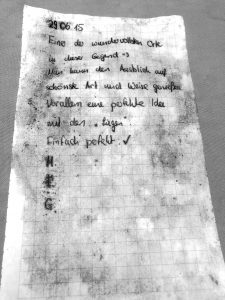 29.06.15
Eine der wundervollsten Orte
in dieser Gegend <3
Man kann den Ausblick auf
schönste Art und Weise genießen
Vorallem eine perfekte Idee
mit den "Lagen".
Einfach perfekt. ✓
H
E
G